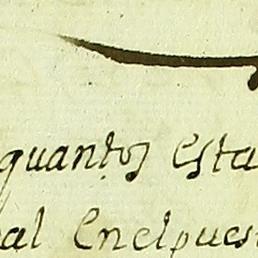 quantos esta
al Enelpues